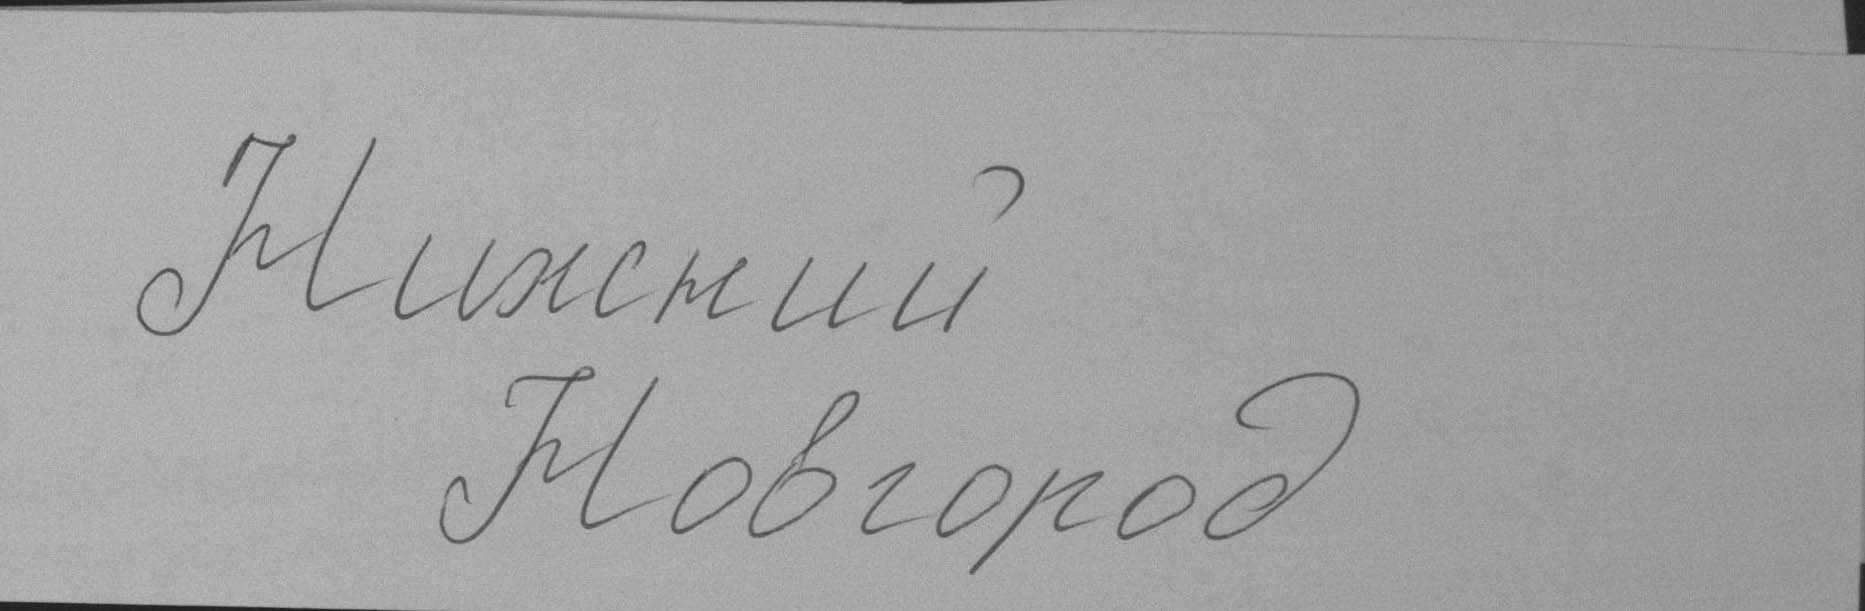 Нижний
Новгород